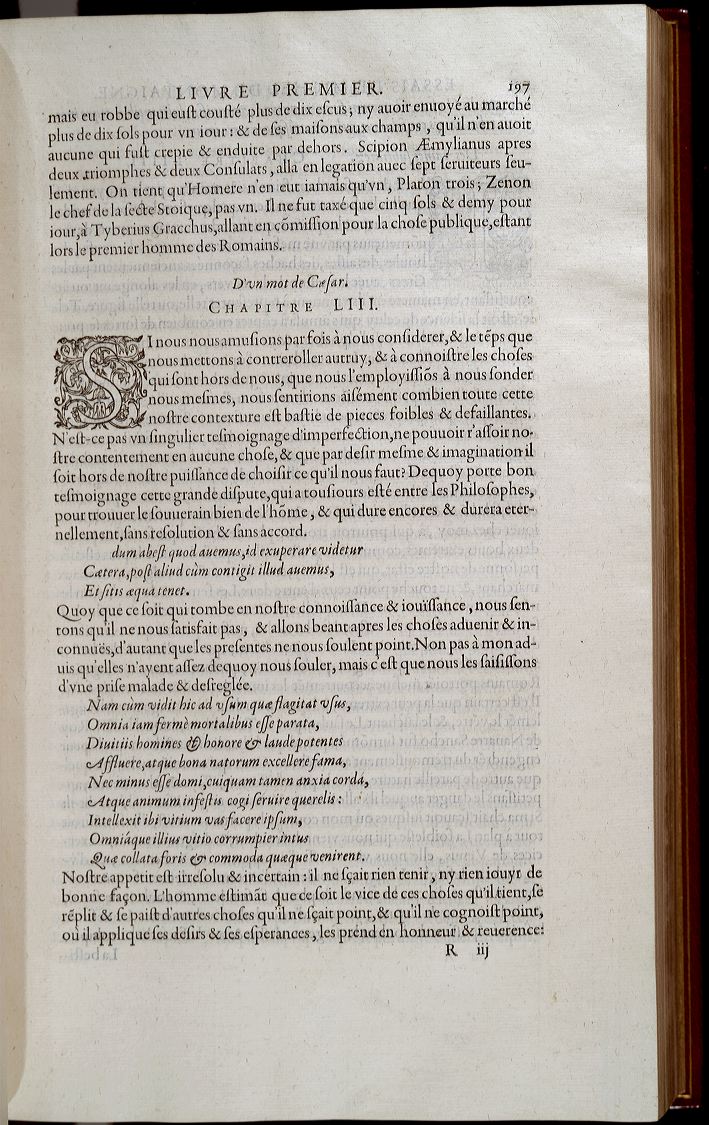 LIVRE PREMIER. 197
mais eu robbe qui eust cousté plus de dix escus; ny auoir enuoyé au marché
plus de dix sols pour vn iour: & de ses maisons aux champs, qu'il n'en auoit
aucune qui fust crepie & enduite par dehors. Scipion Æmylianus apres
deux triomphes & deux Consulats, alla en legation auec sept seruiteurs seu-
lement. On tient qu'Homere n'en eut iamais qu'vn, Platon trois; Zenon
le chef de la secte Stoique, pas vn. Il ne fut taxé que cinq sols & demy pour
iour, à Tyberius Gracchus, allant en cõmission pour la chose publique, estant
lors le premier homme des Romains.
D'vn mot de Cæsar.
CHAPITRE LIII.
SI nous nous amusions par fois à nous considerer, & le tẽps que
nous mettons à contreroller autruy, & à connoistre les choses
qui sont hors de nous, que nous l'employissiõs à nous sonder
nous mesmes, nous sentirions aisément combien toute cette
nostre contexture est bastie de pieces foibles & defaillantes.
N'est-ce pas vn singulier tesmoignage d'imperfection, ne pouuoir r'assoir no-
stre contentement en aucune chose, & que par desir mesme & imagination il
soit hors de nostre puissance de choisir ce qu'il nous faut? Dequoy porte bon
tesmoignage cette grande dispute, qui a tousiours esté entre les Philosophes,
pour trouuer le souuerain bien de l'hõme, & qui dure encores & durera eter-
nellement, sans resolution & sans accord.
dum abest quod auemus, id exuperare videtur
Cætera, post aliud cùm contigit illud auemus,
Et sitis æqua tenet.
Quoy que ce soit qui tombe en nostre connoissance & iouïssance, nous sen-
tons qu'il ne nous satisfait pas, & allons beant apres les choses aduenir & in-
connuës, d'autant que les presentes ne nous soulent point. Non pas à mon ad-
uis qu'elles n'ayent assez dequoy nous souler, mais c'est que nous les saisissons
d'vne prise malade & desreglée.
Nam cùm vidit hic ad vsum quæ flagitat vsus,
Omnia iam fermè mortalibus esse parata,
Diuitiis homines & honore & laude potentes
Affluere, atque bona natorum excellere fama,
Nec minus esse domi, cuiquam tamen anxia corda,
Atque animum infestis cogi seruire querelis:
Intellexit ibi vitium vas facere ipsum,
Omniáque illius vitio corrumpier intus
Quæ collata foris & commoda quæque venirent.
Nostre appetit est irresolu & incertain: il ne sçait rien tenir, ny rien iouyr de
bonne façon. L'homme estimãt que ce soit le vice de ces choses qu'il tient, se
rẽplit & se paist d'autres choses qu'il ne sçait point, & qu'il ne cognoist point,
où il applique ses desirs & ses esperances, les prend en honneur & reuerence:
R iij